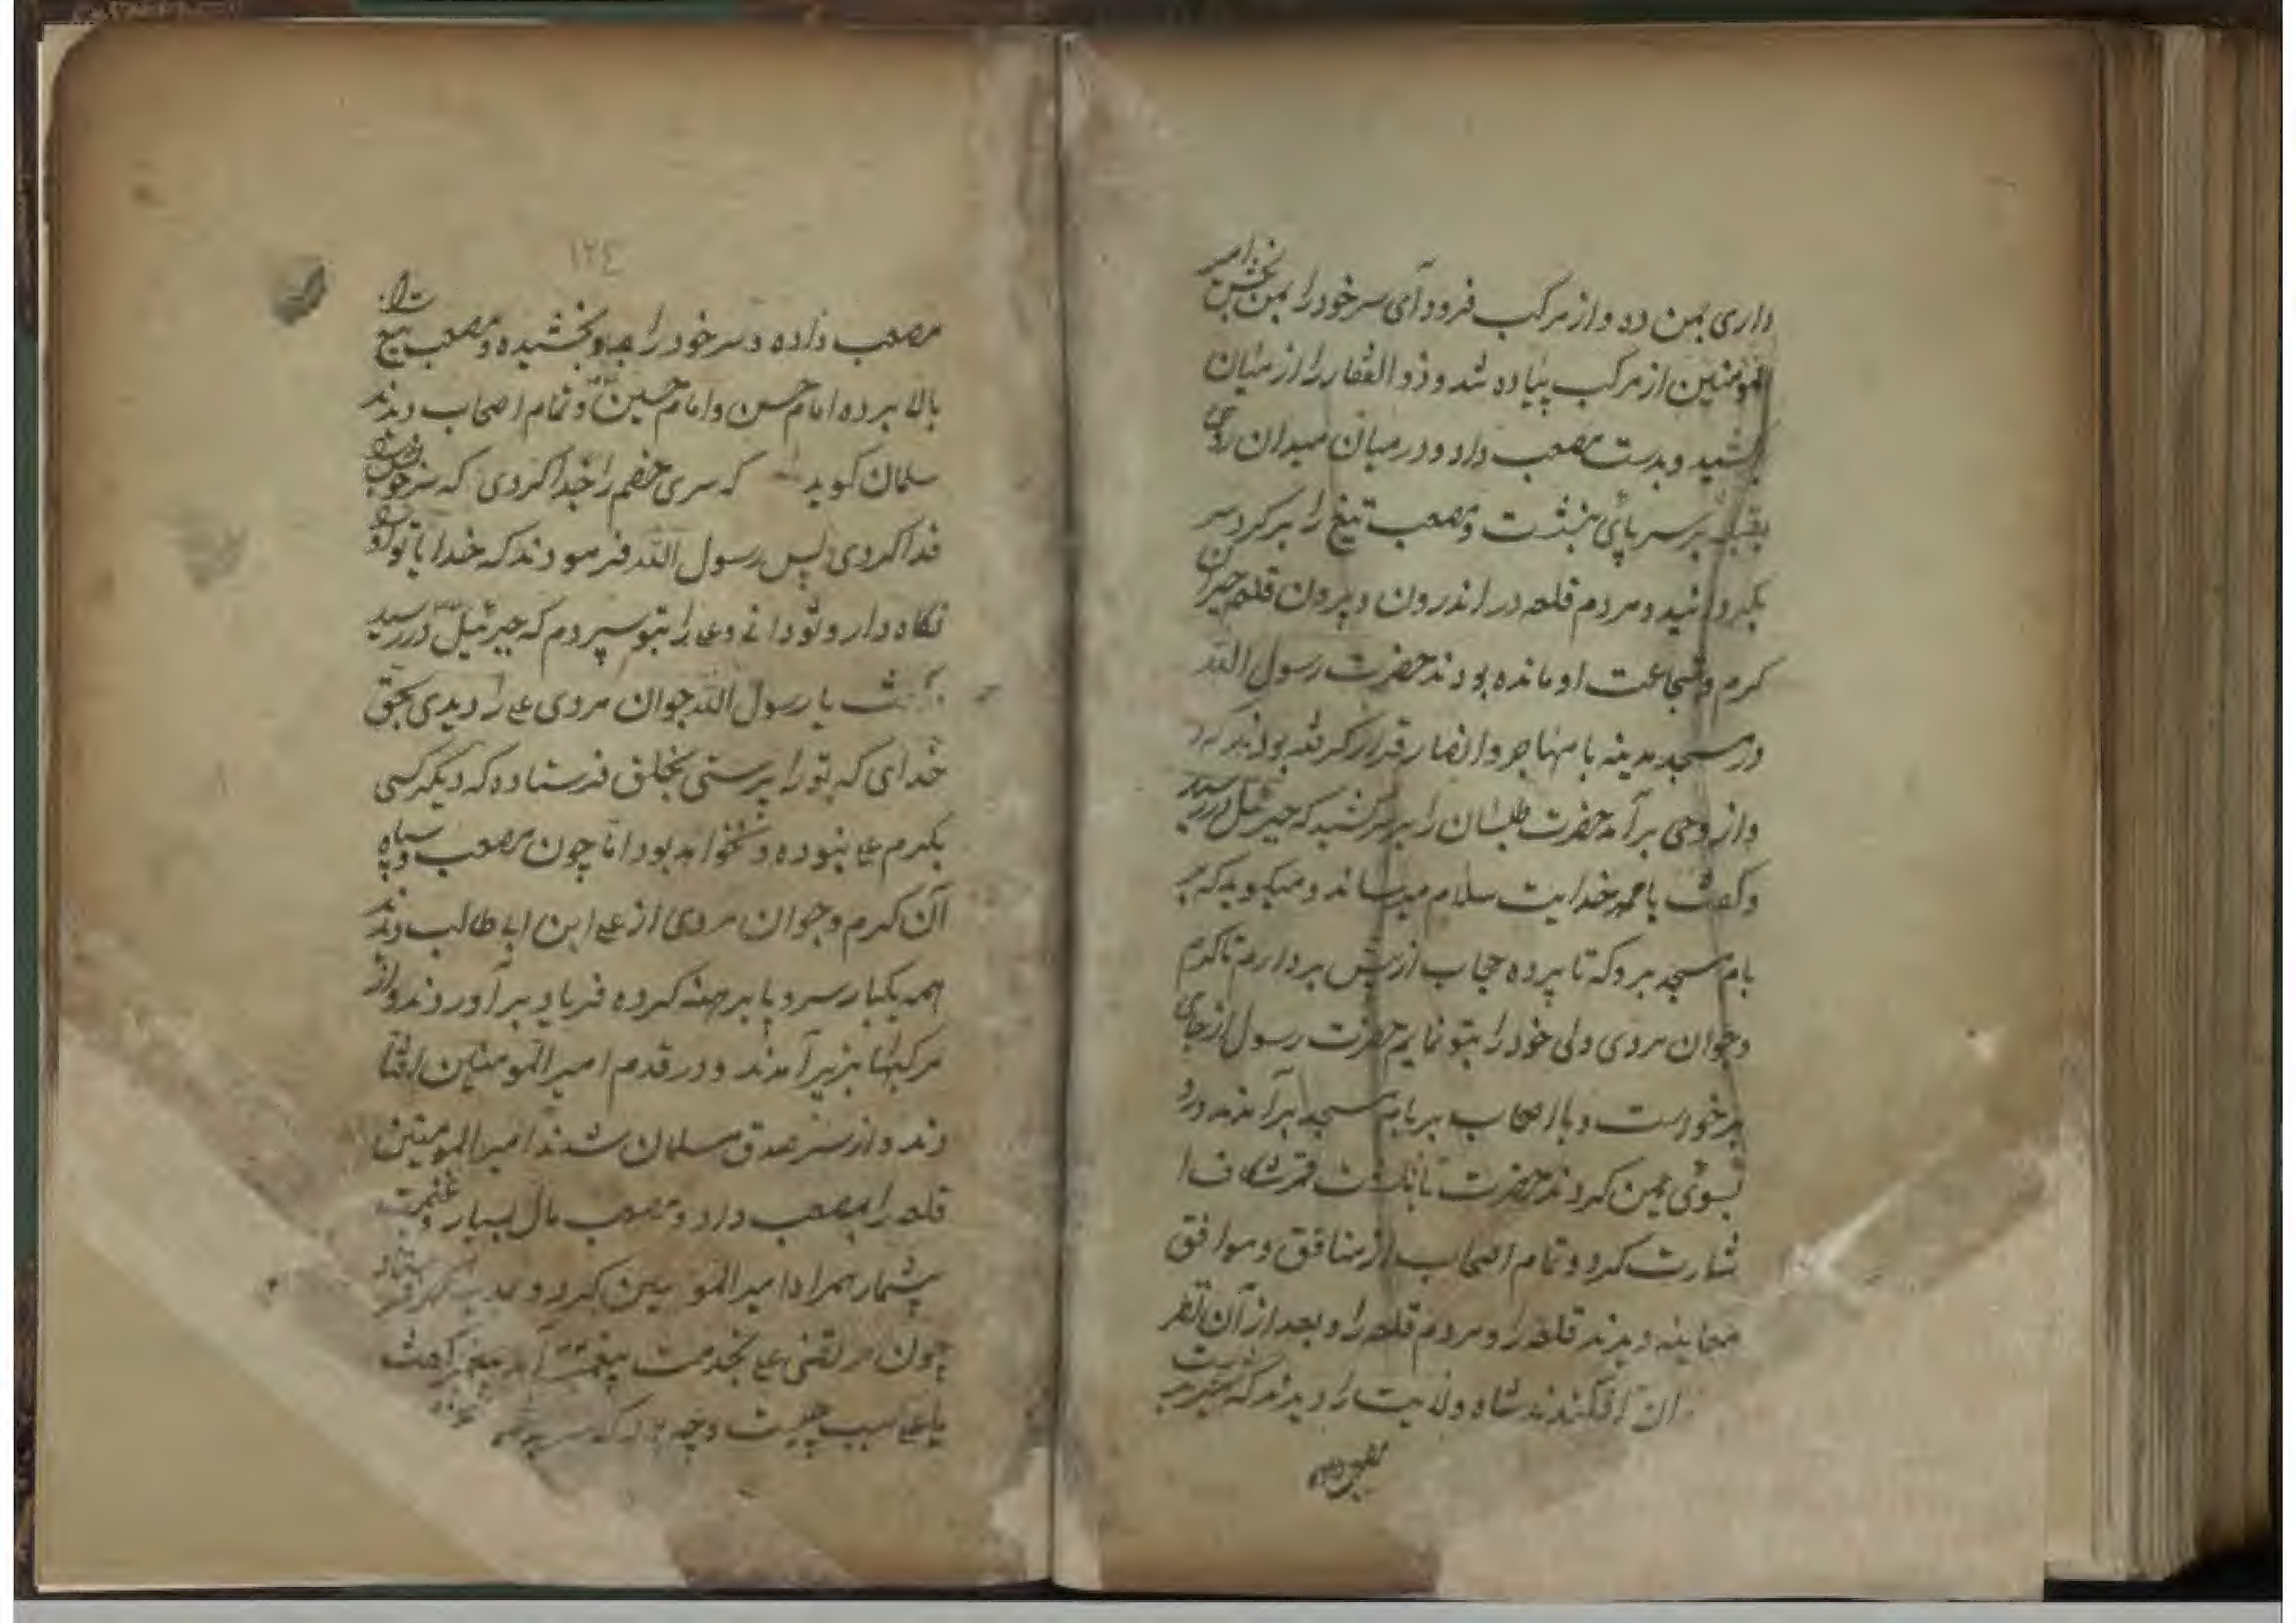 داری بمن ده و از مرکب فرود آی سر خود را بمن بخش امیر
المؤمنین از مرکب پیاده شد و ذو الفقار را از میان
کشید و بدست مصعب داد و در میان میدان روی
بقبله بر سر پای بنشست و مصعب تیغ را بر کرد سر
بگردانید و مردم قلعه در اندرون و بیرون قلعه حیران
کرم و شجاعت او مانده بودند حضرت رسول الله
در مسجد مدینه با مهاجر و انصار قرار گرفته بودند که
واز وحی بر آمد حضرت طلیسان را بر سر کشید که جبرئیل در رسید
و گفت یا محمد خدایت سلام میرساند و میگوید که بر
بام مسجد برو که تا پرده حجاب از پیش بردارم تا کرم
و جوان مردی ولی خود را بتو نمایم حضرت رسول از جای
برخواست و با اصحاب بر بام مسجد بر آمدند و رو
بسوی یمن کردند حضرت بانگشت قمر شکاف ا
شارت کرد و تمام اصحاب از منافق و موافق
معاینه دیدند قلعه را و مردم قلعه را و بعد از آن نظر
ان افکندند شاه ولایت را دیدند که شمشیر
۱۲٤
مصعب داده و سر خود را باو بخشیده و مصعب تیغ را
بالا برده امام حسن و امام حسین و تمام اصحاب دیدند
سلمان گوید که سری خصم را جدا کردی که سر خود
فدا کردی پس رسول الله فرمودند که خدایا تو او را
نگاه دار و تو دانی و علی را بتو سپردم که جبرئیل در رسید
گفت یا رسول الله جوان مردی علی را دیدی بحق
خدای که تو را براستی بخلق فرستاده که دیگر کسی
بکرم علی نبوده و نخواهد بود اما چون مصعب و سپاه
آن کرم و جوان مردی از علی ابن ابی طالب دیدند
همه یکبار سر و پا برهنه کرده فریاد بر آوردند و از
مرکبها بزیر آمدند و در قدم امیر المؤمنین افتا
دند و از سر صدق مسلمان شدند امیر المومنین
قلعه را بمصعب داد و مصعب مال بسیار و غنیمت
بیشمار همراه امیر المؤمنین کرد و بمدینه فرستاد
چون مرتضی علی بخدمت پیغمبر آمد پیغمبر گفت
یا علی سبب چیست و چه بود که سر